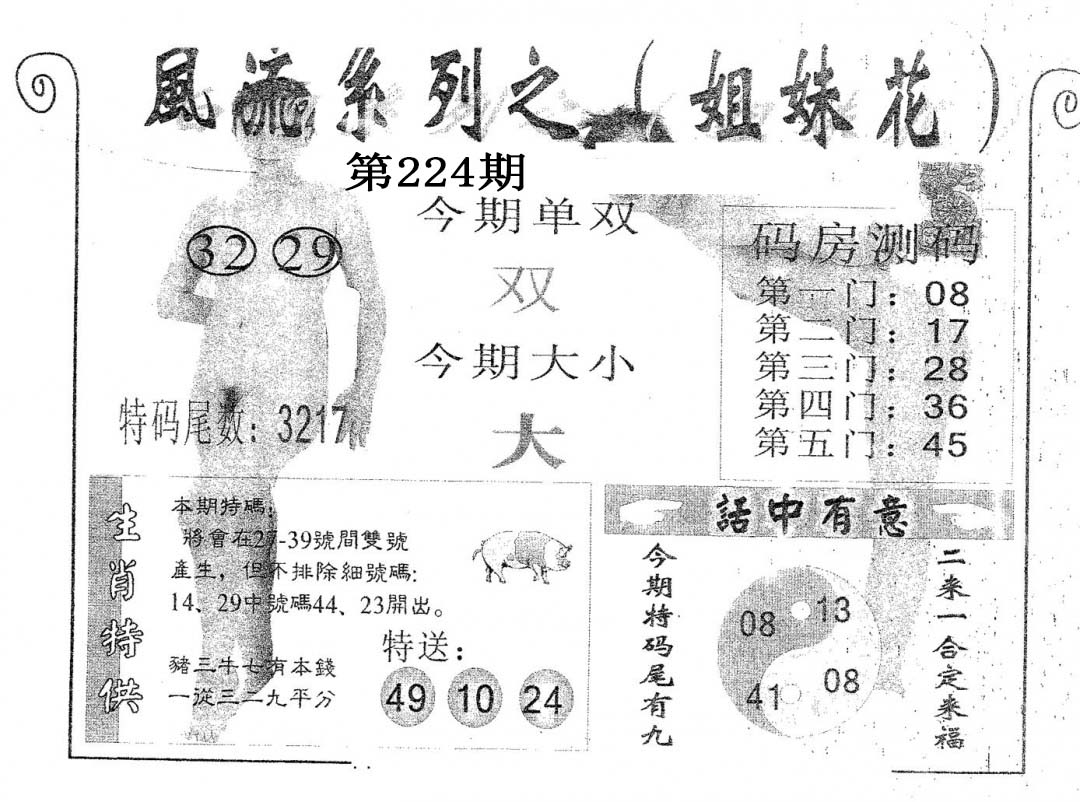 風流系列之（姐妹花）
第224期
32 29
今期单双
双
今期大小
大
特码尾数：3217
码房测码
第一门：08
第二门：17
第三门：28
第四门：36
第五门：45
生肖特供
本期特碼：
將會在27-39號間雙號
產生，但不排除細號碼：
14、29中號碼44、23開出。
豬三牛七有本錢
一從三二九平分
特送：
49 10 24
話中有意
今期特码尾有九
08 13
41 08
二来一合定来福